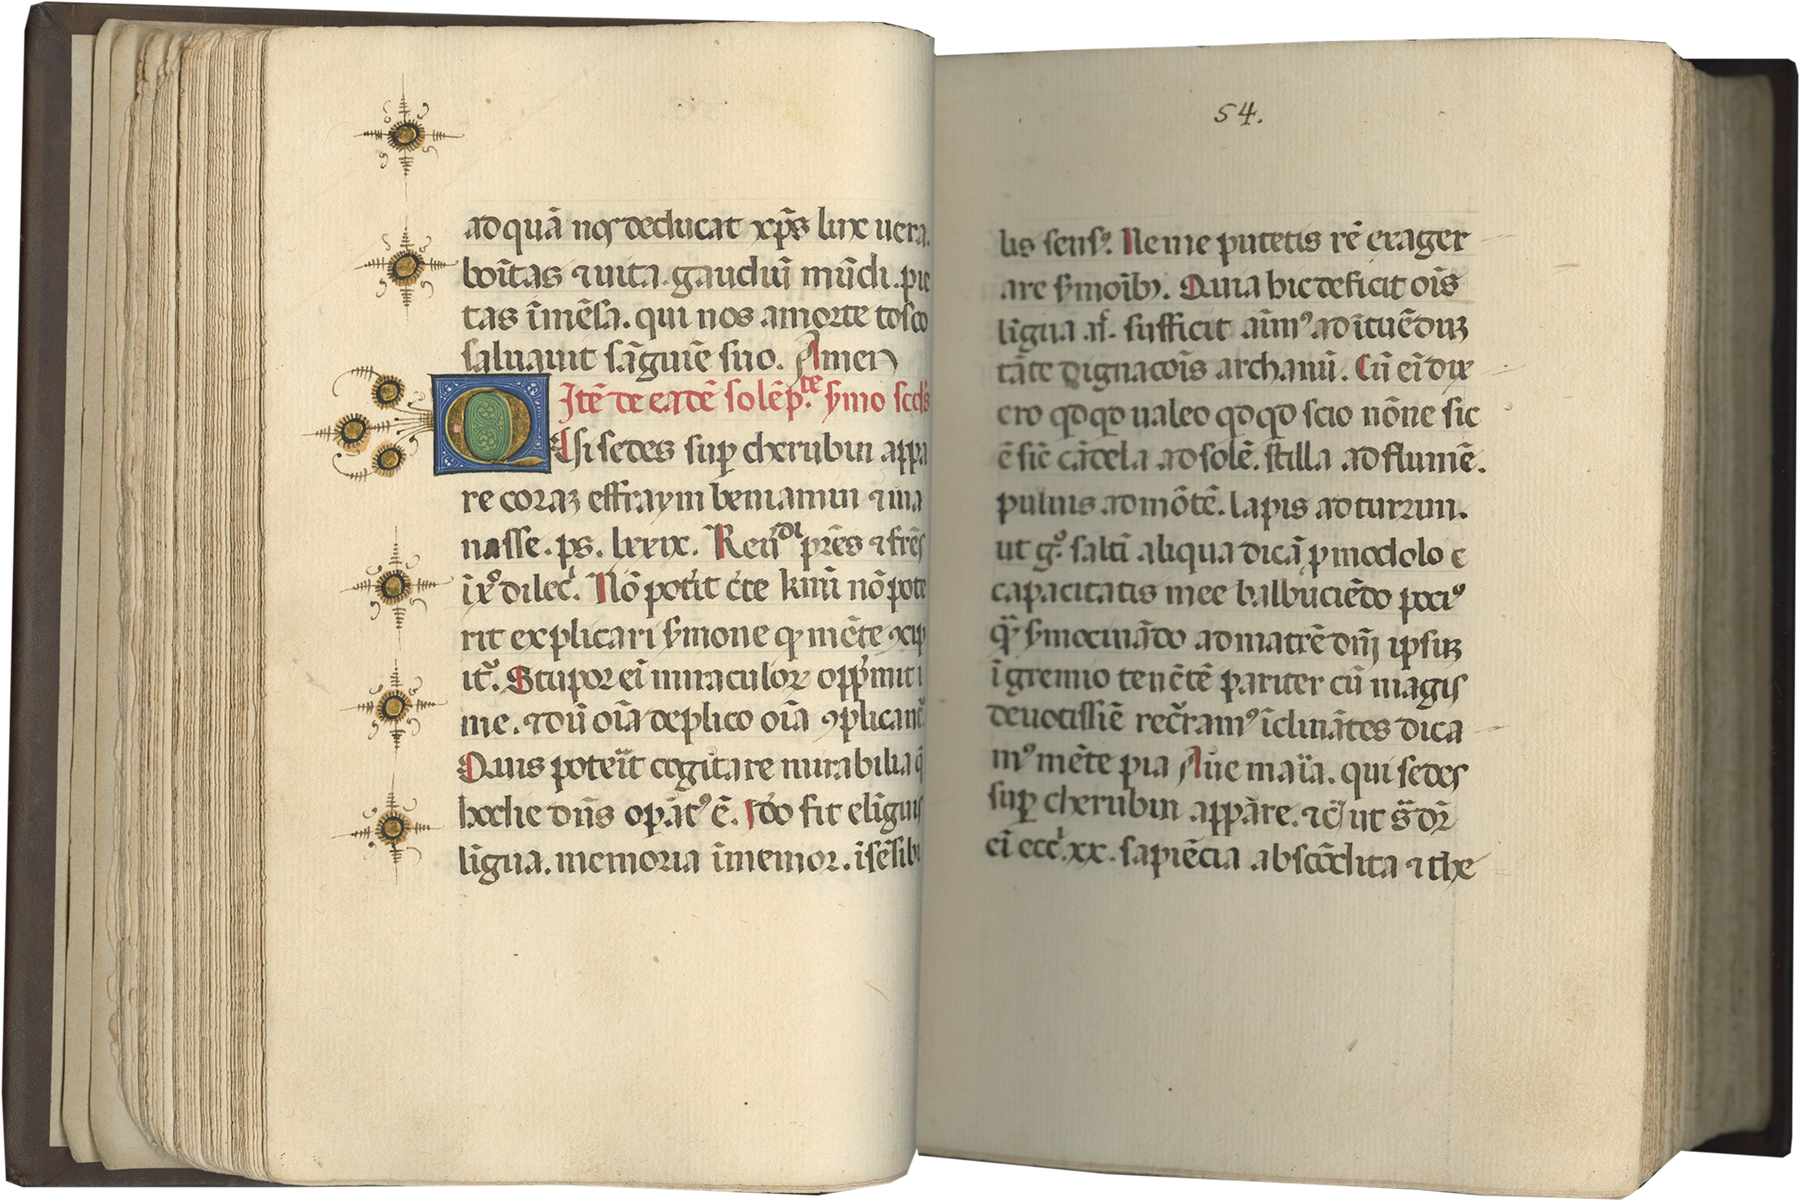 ad quā nos deducat xp̄s lux uera.
boītas ⁊ uita. gaudiū mūdi. pie
tas īmēsa. qui nos a morte tosco
saluauit sāguiē suo. Amen
Itē de eadē solēp.te s̄mo scd̓s
Qui sedes suꝑ cherubin appa
re coraz effraym beniamin ⁊ ma
nasse. ps. lxxix. Reūdi pr̄es ⁊ fr̄es
ī xº dilec̄. Nō potit c̄te kmi nō pote
rit explicari s̄mone ꝙ mēte ꝯcip
it̄. Stupor ei miraculoꝝ opp̄mit i
me. ⁊ dū oīa deplico oīa ꝯplicant̄.
Quis poteīt cogitare mirabilia q̄
hodie dn̄s opāt᷒ ē. Ido fit elīguis
līgua. memoria īmemor. īsēsibi
54.
lis sens᷒. Ne me putetis rē exager
are s̄moīb᷒. Quia hic deficit oīs
līgua. n̄. sufficit aīm᷒ ad ītuēduꝫ
tāte dignacōis archanū. Cū ei dix
ero qdqd ualeo qdqd scio nōne sic
ē sic̄ cādela ad solē. stilla ad flumē.
puluis ad mōtē. lapis ad turrim.
ut gº saltī aliqua dicā ꝑ modolo ⁊
capacitatis mee balbuciēdo poci᷒
q̄ s̄mocinādo ad matrē dn̄i ipsuꝫ
ī gremio tenētē pariter cū magis
deuotissīe rec̄ram᷒ īclināntes dica
m᷒ mēte pia Aue maīa. qui sedes
suꝑ cherubin appāre. ⁊c̄ ut s̄ dr̄
ei ecc̄i. xx. sapiēcia abscōdita ⁊ the